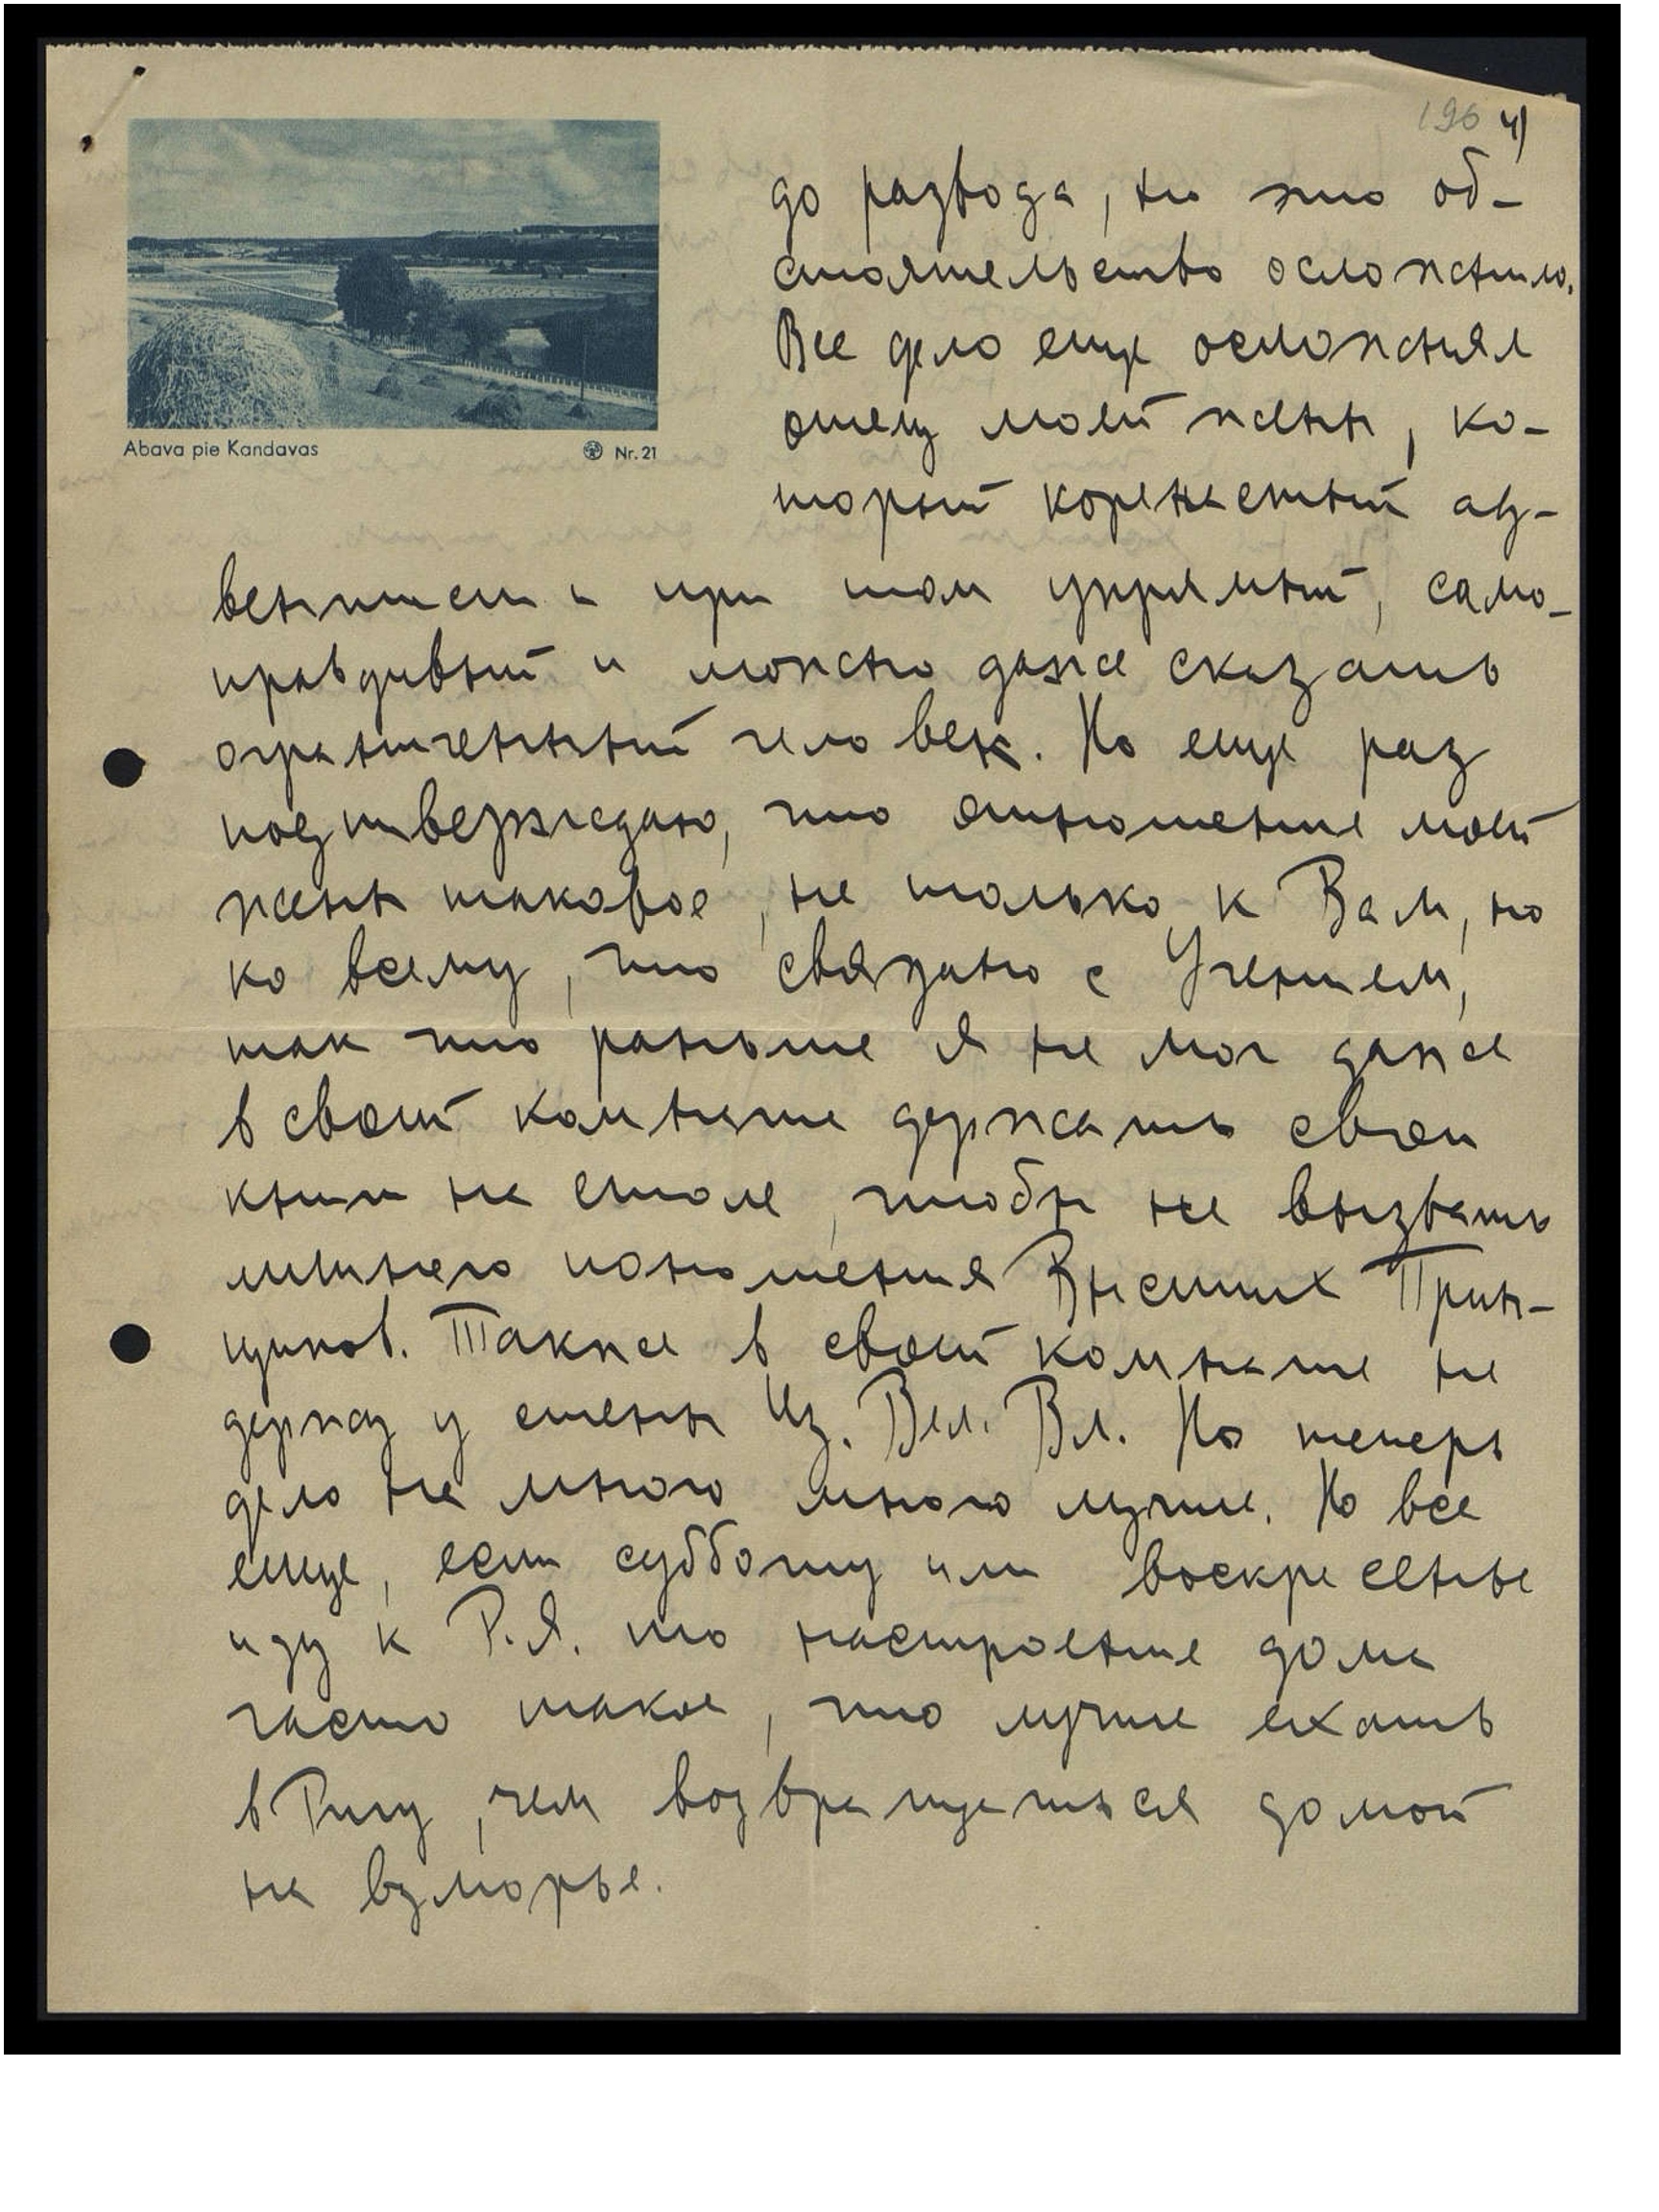 196 4)
до развода, но это об-
стоятельство осложнило.
Все дело еще осложнял
отец моей жены, ко-
торый коренастый ад-
Abava pie Kandavas Nr. 21
вентист и при том упрямый, само-
правдивый и можно даже сказать
ограниченный человек. Но еще раз
подтверждаю, что отношение моей
жены таковое, не только к Вам, но
ко всему, что связано с Учением,
так что раньше я не мог даже
в своей комнате держать свои
книги на столе, чтобы не вызвать
лишнего поношения Высших Прин-
ципов. Также в своей комнате не
держу у стены Из. Вел. Вл. Но теперь
дело на много много лучше. Но все
еще, если субботу или воскресенье
иду к Р.Я. то настроение дома
часто такое, что лучше ехать
в Ригу, чем возвращаться домой
на взморье.